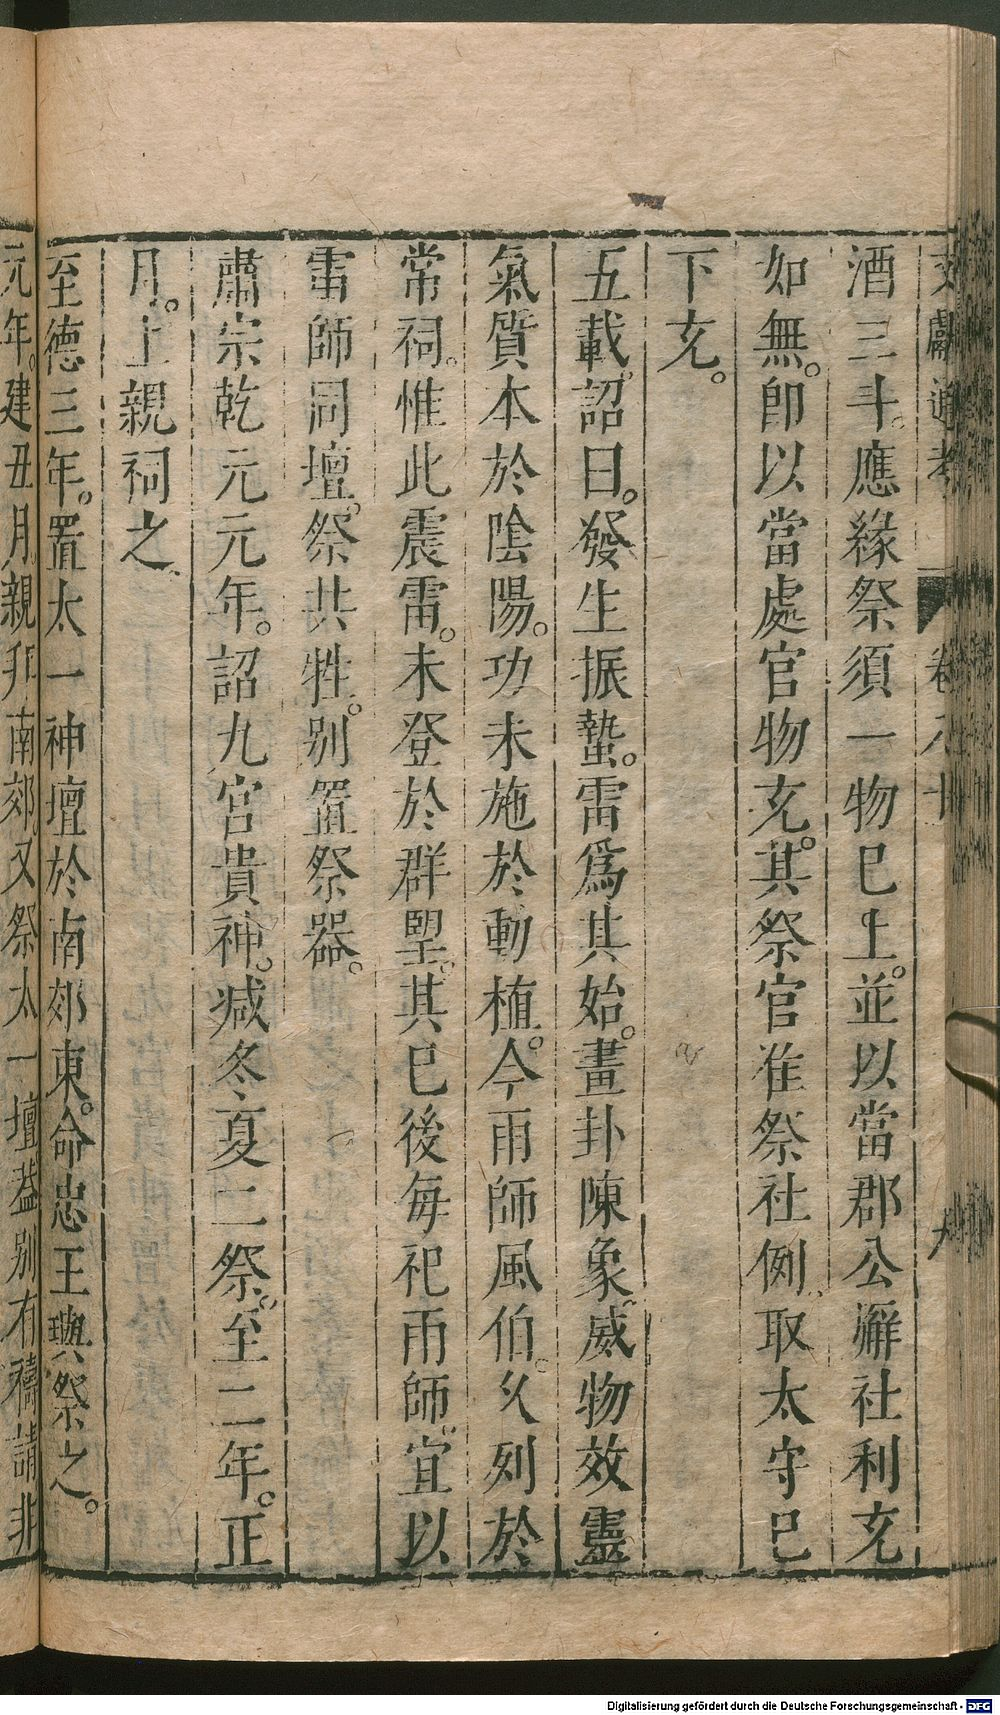 文獻通考 卷八十 九
酒三斗。應緣祭須一物已上。並以當郡公廨社利充
如無。即以當處官物充。其祭官准祭社例。取太守已
下充。
五載。詔曰。發生振蟄。雷爲其始。畫卦陳象。威物效靈
氣質本於陰陽。功未施於動植。今雨師風伯。久列於
常祠。惟此震雷。未登於群望。其已後每祀雨師。宜以
雷師同壇。祭共牲。别置祭器。
肅宗乾元元年。詔九宮貴神。减冬夏二祭。至二年。正
月。上親祠之。
至德三年。置太一神壇於南郊東。命忠王璵祭之。
元年。建丑月。親拜南郊。又祭太一壇。葢别有禱請。非
Digitalisierung gefördert durch die Deutsche Forschungsgemeinschaft - DFG